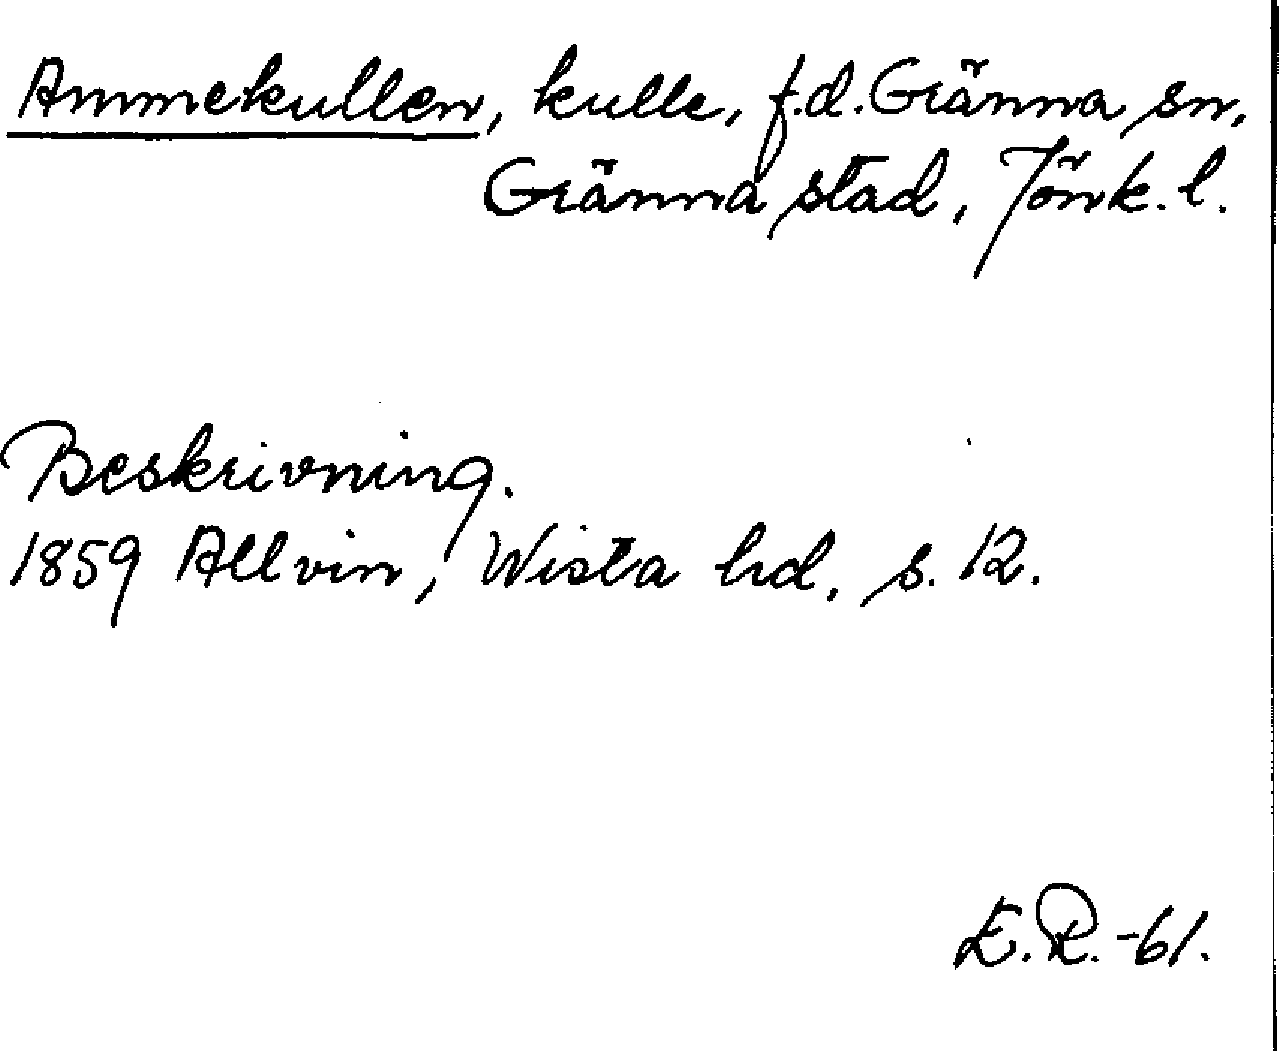 Ammekullen, kulle, f.d. Gränna sn,
Gränna stad, Jönk. l.
Beskrivning.
1859 Allvin, Wista hd, s. 12.
E.R. -61.